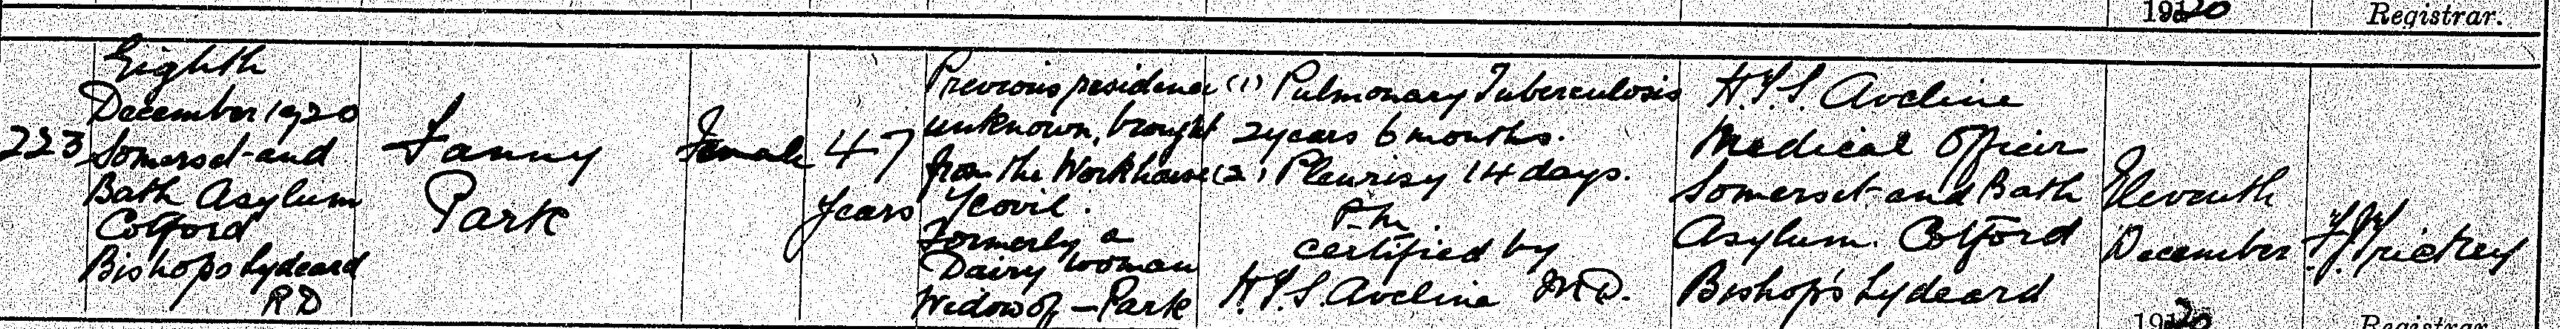 1920
Registrar.
223
Eighth
December 1920
Somerset and
Bath Asylum
Cotford
Bishops Lydeard
RD
Fanny
Park
Female
47
years
Previous residence
unknown, brought
from the Workhouse
Yeovil.
Formerly a
Dairy woman
Widow of — Park
(1) Pulmonary Tuberculosis
2 years 6 months.
(2) Pleurisy 14 days.
P.M.
Certified by
H.T.S. Aveline M.D.
H.T.S. Aveline
Medical Officer
Somerset and Bath
Asylum. Cotford
Bishop's Lydeard
Eleventh
December
1920
Trickey
Registrar.